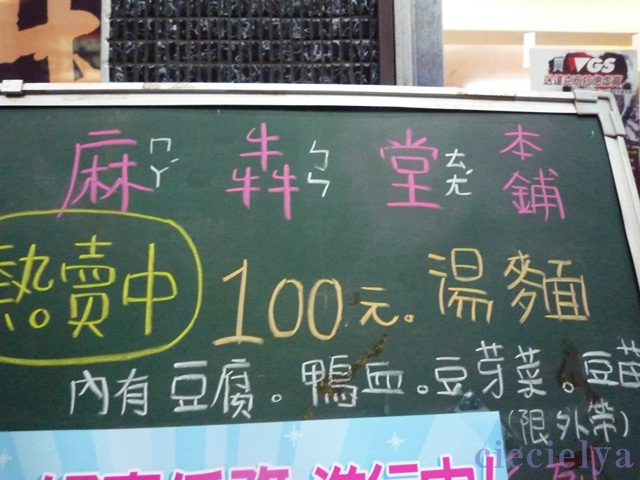 麻ㄇㄚˊ 犇ㄅㄣ 堂ㄊㄤˊ 本鋪
熱賣中 100元。湯麵
內有豆腐。鴨血。豆芽菜。豆苗
(限外帶)
VGS
ciecielya